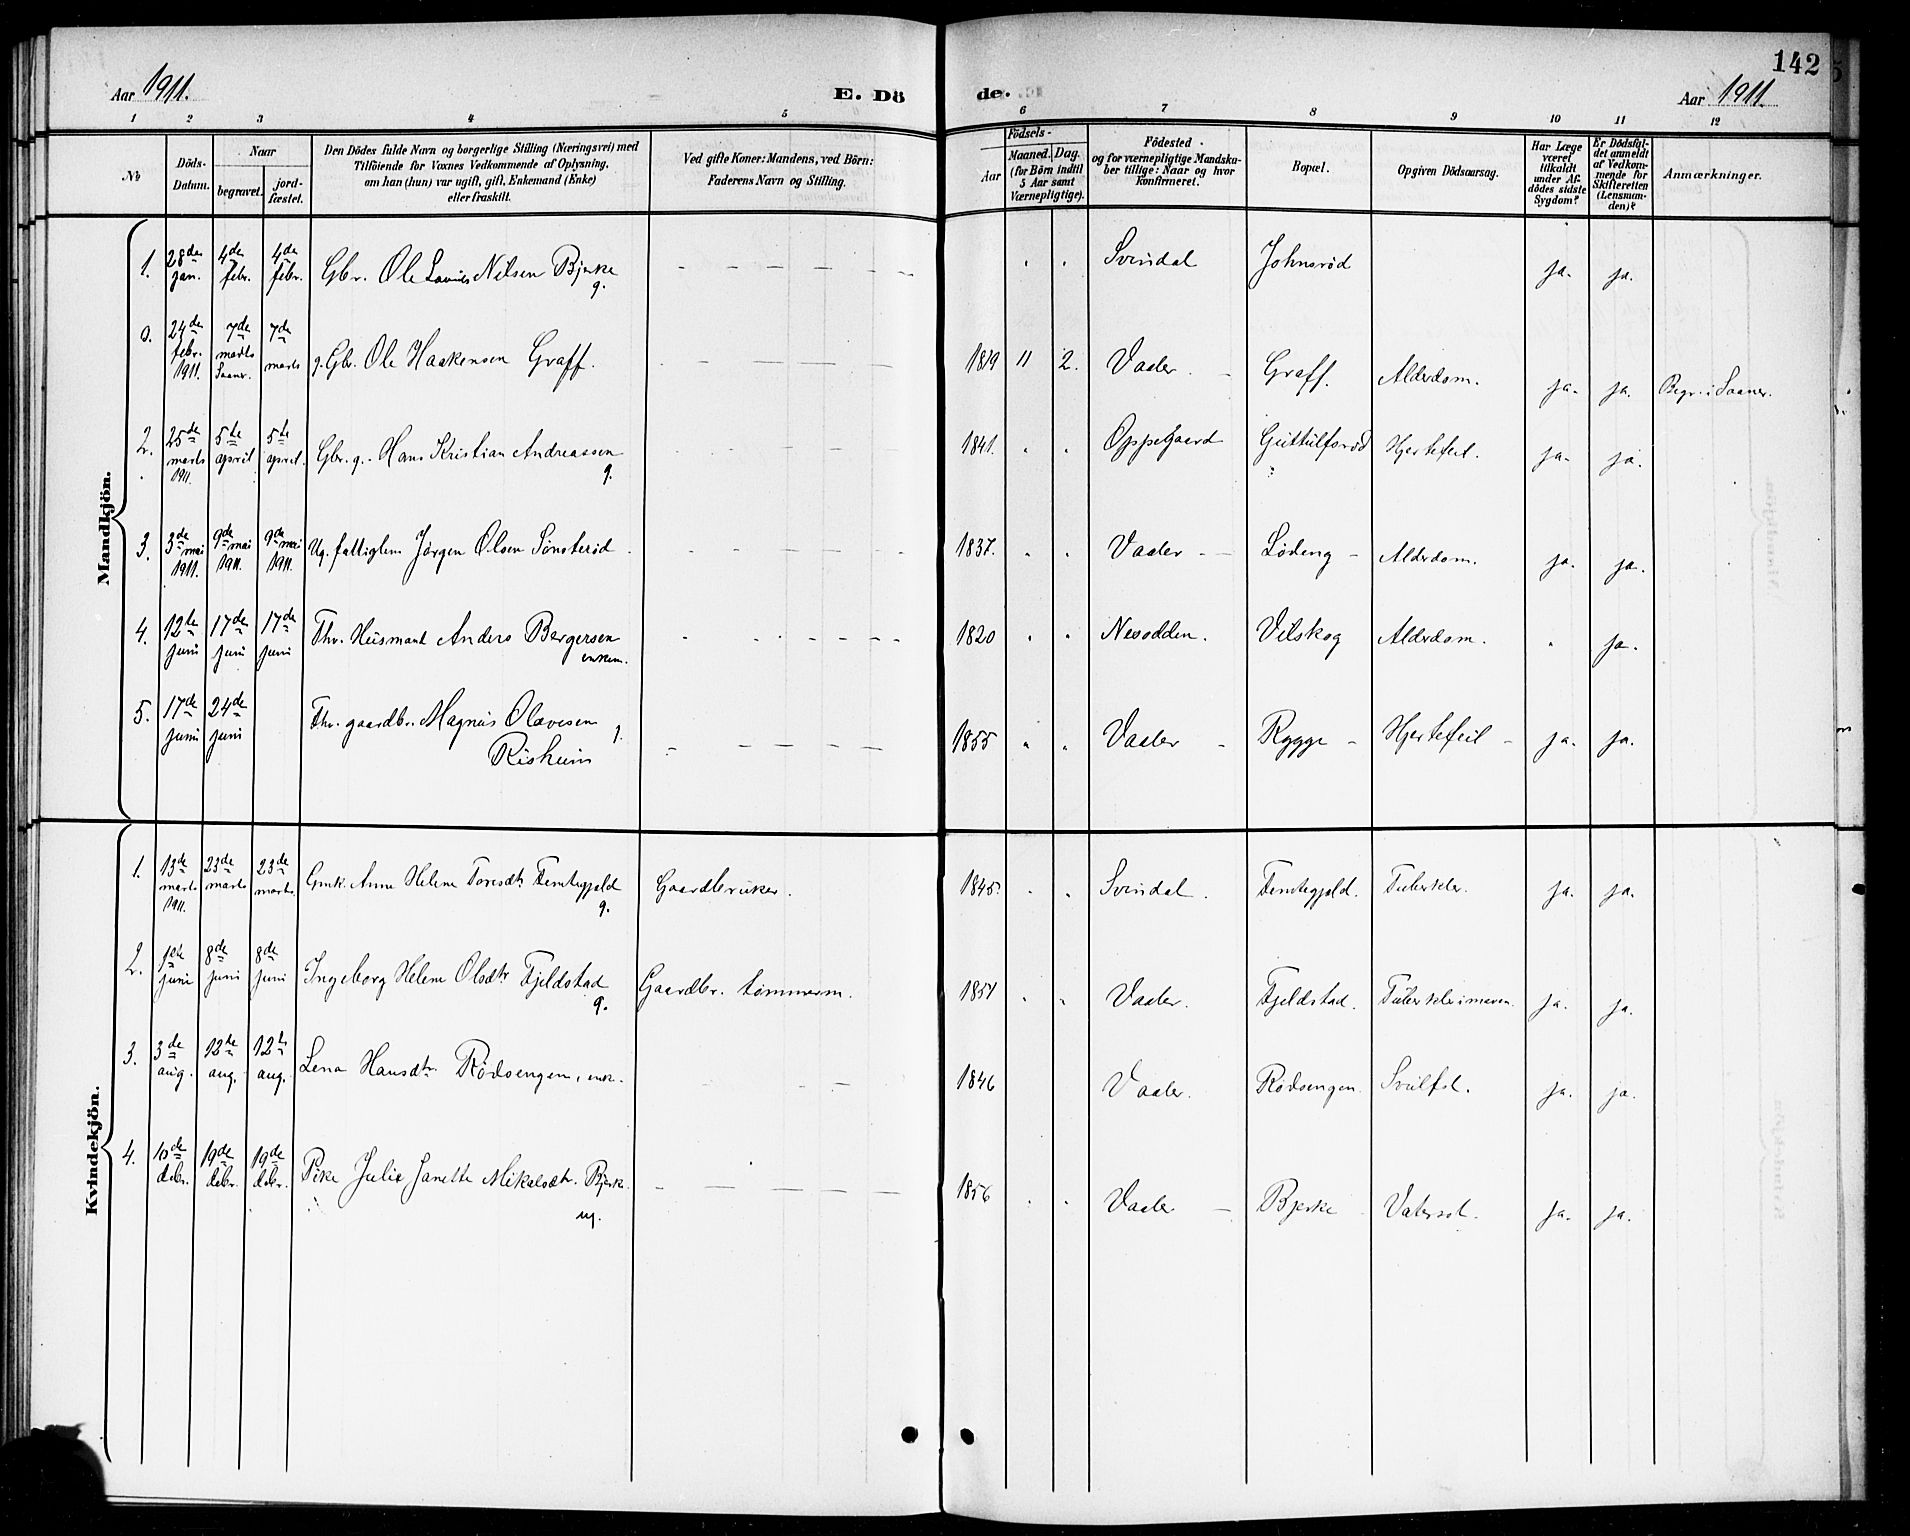 142
Aar 1911.
E. Dö
de.
Aar 1911.
1 2 3 4 5 6 7 8 9 10 11 12
No
Döds-
Datum.
Naar
begravet.
jord-
fæstet.
Den Dödes fulde Navn og borgerlige Stilling (Næringsvei) med
Tilföiende for Voxnes Vedkommende af Oplysning,
om han (hun) var ugift, gift, Enkemand (Enke)
eller fraskilt.
Ved gifte Koner: Mandens, ved Börn:
Faderens Navn og Stilling.
Födsels-
Aar
Maaned. Dag.
(for Börn indtil
5 Aar samt
Værnepligtige).
Födested
og for værnepligtige Mandska-
ber tillige: Naar og hvor
Konfirmeret.
Bopæl.
Opgiven Dödsaarsag.
Har Læge
været
tilkaldt
under Af-
dödes sidste
Sygdom?
Er Dödsfal-
det anmeldt
af Vedkom-
mende for
Skifteretten
(Lensman-
den)?
Anmærkninger.
Mandkjön.
1. 28de jan. 4de febr. 4de febr. Gbr. Ole Nilsen Bjerke g. Svindal Johnsrød ja. ja.
0. 24de febr. 1911. 7de marts Saaner. 7de marts g. Gbr. Ole Haakensen Graff. 1819 11 2. Vaaler. Graff. Alderdom. ja. ja. Begr. i Saaner.
2. 25de marts 1911. 5te april 5te april Gbr. g. Hans Kristian Andreassen g. 1841. Oppegaard Guttulfsrød Hjertefeil. ja. ja.
3. 3de mai 1911. 9de mai 1911. 9de mai 1911. Ug. fattiglem Jørgen Olsen Sønsterød 1837. Vaaler Lødeng Alderdom. ja. ja.
4. 12te juni 17de juni 17de juni Fhv. Husmand Anders Bergersen enkem. 1820 Nesodden. Vilskog Alderdom. ja.
5. 17de juni 24de juni Fhv. gaardbr. Magnus Olavesen g.
Risheim 1855 Vaaler Rygge Hjertefeil ja. ja.
Kvindekjön.
1. 13de marts 1911. 23de marts 23de marts Gmk. Anne Helene Toresdtr Femtegjeld g. Gaardbruker. 1845. Svindal. Femtegjeld. Tuberkler. ja. ja.
2. 1ste juni 8de juni 8de juni Ingeborg Helene Olsdtr Fjeldstad g. Gaardbr. tømmerm. 1851 Vaaler. Fjeldstad. Tuberkler i maven. ja. ja.
3. 3de aug. 12te aug. 12te aug. Lena Hansdtr. Rødsengen, enk. 1846 Vaaler. Rødsengen. Svulst. ja. ja.
4. 10de debr. 19de debr. 19de debr. Pike Julie Janette Mikalsdtr. Bjerke ug. 1856 Vaaler Bjerke Vatersot. ja. ja.